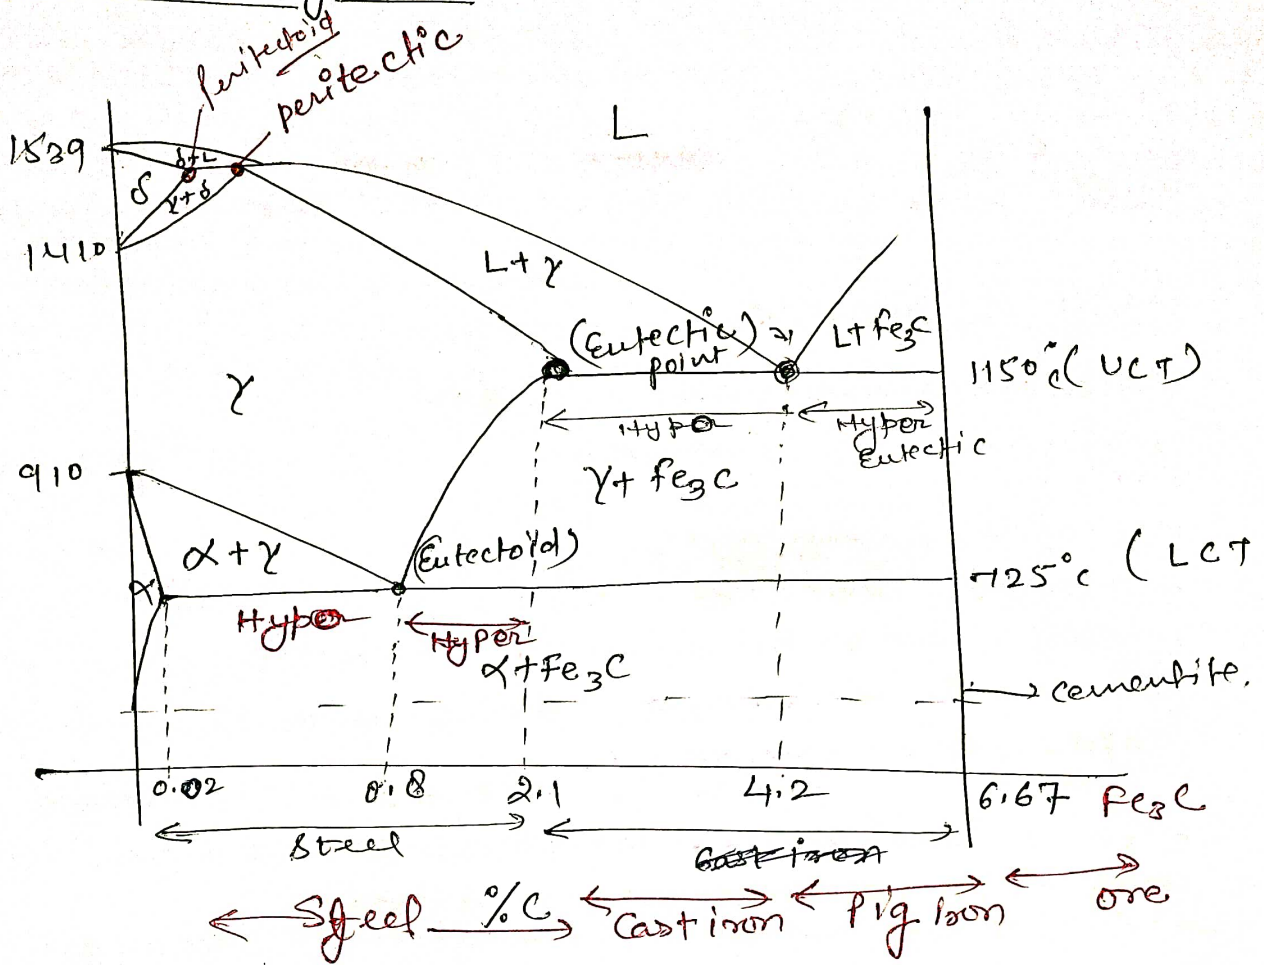 peritectoid
peritectic
L
1539
δ+L
δ
γ+δ
1410
L+γ
(Eutectic)
point
L+Fe3C
1150°c (UCT)
γ
Hypo
Hyper
Eutectic
910
γ+Fe3C
α+γ
(Eutectoid)
α
725°c (LCT
Hypo
Hyper
α+Fe3C
cementite.
0.02
0.8
2.1
4.2
6.67 Fe3C
Steel
Cast iron
Steel
%C
Cast iron
Pig iron
ore